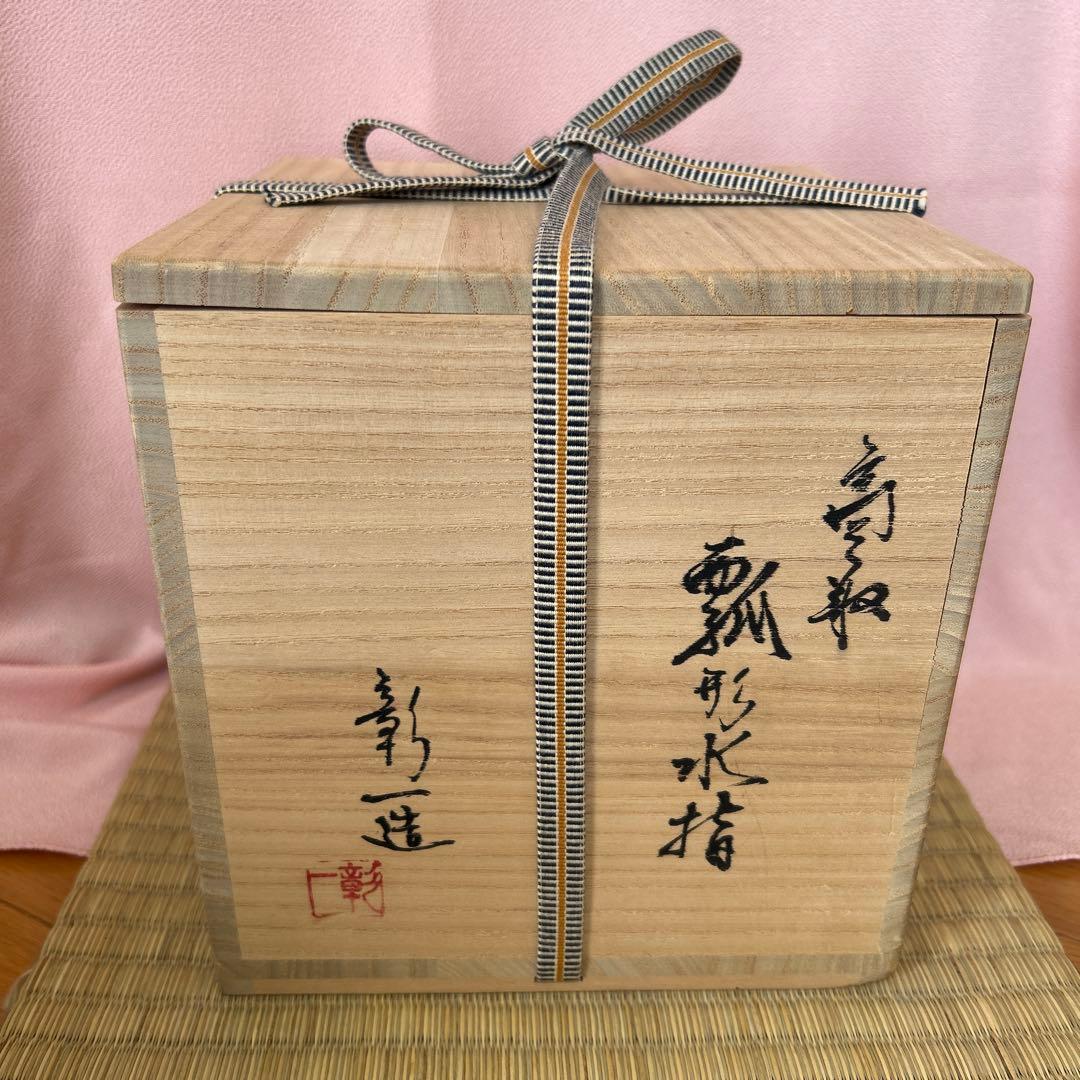 高取
瓢形水指
彰一造
彰一